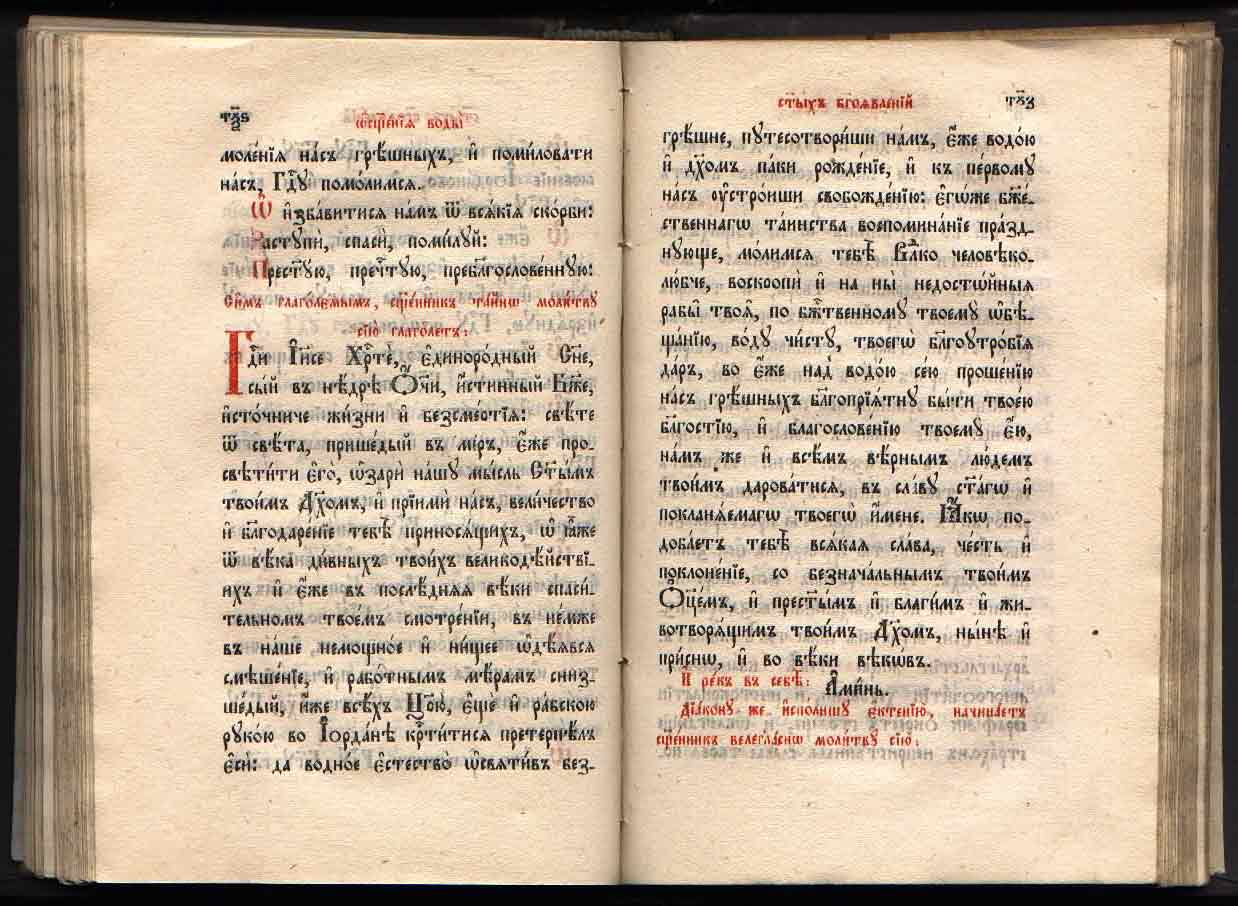 тѯ҃ѕ
ѡ҆сщ҃е́нїѧ воды̀
моле́нїѧ на́съ грѣ́шныхъ, и҆ поми́ловати
на́съ, Гд҇ꙋ помо́лимсѧ.
Ѡ҆ и҆зба́витисѧ на́мъ ѿ всѧ́кїѧ ско́рби:
Застꙋпѝ, спасѝ, поми́лꙋй:
Прест҃ꙋ́ю, пречⷭ҇тꙋю, преблгⷭ҇лове́ннꙋю:
Си̑мъ глаго́лємымъ, сщ҃е́нникъ та́йнѡ моли́твꙋ
сїю̀ глаго́летъ:
Гдⷭ҇и І҆и҃се Хрⷭ҇тѐ, є҆диноро́дный Сн҃е,
сы́й въ нѣ́дрѣ Ѻ҆́ч҃и, и҆́стинный Бж҃е,
и҆сто́чниче жи́зни и҆ безсме́ртїѧ: свѣ́те
ѿ свѣ́та, прише́дый въ мі́ръ, є҆́же про-
свѣти́ти є҆го̀, ѡ҆зарѝ на́шꙋ мы́сль Ст҃ы́мъ
твои́мъ Дх҃омъ, и҆ прїимѝ на́съ, вели́чество
и҆ блгⷣаре́нїе тебѣ̀ принося́щихъ, ѡ҆ ꙗ҆̀же
ѿ вѣ́ка ди́вныхъ твои́хъ великодѣ́йствї-
ихъ и҆ є҆́же въ послѣ́днѧѧ вѣ́ки спаси́-
тельномъ твое́мъ смотре́нїи, въ не́мже
въ на́ше немощно́е и҆ ни́щее ѡ҆дѣ́ѧвсѧ
смѣше́нїе, и҆ рабо́тнымъ мѣ́рамъ сниз-
ше́дый, и҆́же всѣ́хъ Цр҃ю̀, є҆щѐ и҆ ра́бскою
рꙋко́ю во І҆ѻрда́нѣ крⷭ҇ти́тисѧ претерпѣ́лъ
є҆сѝ: да во́дное є҆стество̀ ѡ҆свѧти́въ без-
ст҃ы́хъ бг҃оѧвле́нїй
тѯ҃з
грѣ́шне, пꙋтесотвори́ши на́мъ, є҆́же водо́ю
и҆ дх҃омъ па́ки рожде́нїе, и҆ къ пе́рвомꙋ
на́съ ᲂу҆стро́иши свобожде́нїю: є҆гѡ́же бж҃е́-
ственнагѡ та́инства воспомина́нїе пра́зд-
нꙋюще, мо́лимсѧ тебѣ̀ Влⷣко человѣко-
лю́бче, воскропѝ и҆ на ны̀ недостѡ́йныѧ
рабы̑ твоѧ̑, по бж҃е́ственномꙋ твоемꙋ̀ ѡ҆бѣ-
ща́нїю, во́дꙋ чи́стꙋ, твоегѡ̀ бл҃гоꙋтро́бїѧ
да́ръ, во є҆́же над̾ водо́ю се́ю проше́нїю
на́съ грѣ́шныхъ бл҃гопрїѧ́тнꙋ бы́ти твое́ю
бл҃гостїю, и҆ благослове́нїю твоемꙋ̀ є҆́ю,
на́мъ же и҆ всѣ́мъ вѣ̑рнымъ лю́демъ
твои́мъ дарова́тисѧ, въ сла́вꙋ ст҃а́гѡ и҆
поклана́емагѡ твоегѡ̀ и҆́мене. Ꙗ҆́кѡ по-
доба́етъ тебѣ̀ всѧ́каѧ сла́ва, че́сть и҆
поклоне́нїе, со безнача́льнымъ твои́мъ
Ѻ҆ц҃е́мъ, и҆ прест҃ы́мъ и҆ бл҃ги́мъ и҆ жи-
вотворѧ́щимъ твои́мъ Дх҃омъ, ны́нѣ и҆
при́снѡ, и҆ во вѣ́ки вѣкѡ́въ.
И҆ ре́къ въ себѣ̀: А҆ми́нь.
Дїа́конꙋ же и҆спо́лншꙋ є҆ктенїю̀, начина́етъ
сщ҃е́нникъ велегла́снѡ моли́твꙋ сїю̀: